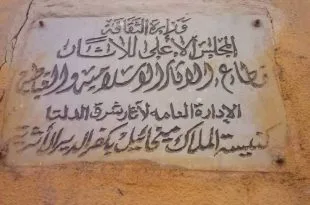 وزارة الثقافة
المجلس الأعلى للآثار
قطاع الآثار الإسلامية والقبطية
الإدارة العامه لآثار شرق الدلتا
كنيسة الملاك ميخائيل بكفر الدير الأثرية